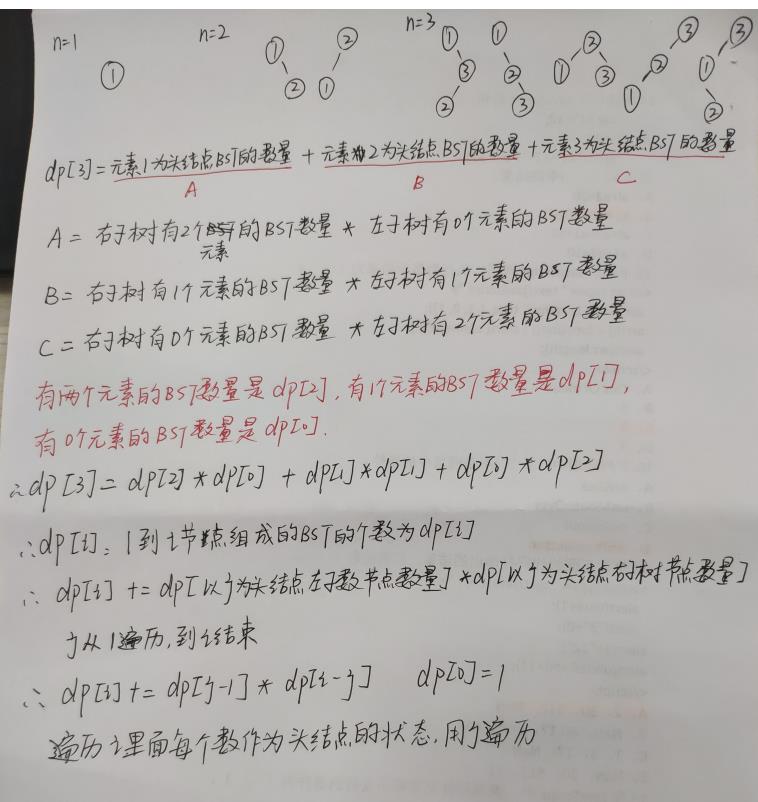 n=1
①
n=2
① ②
② ①
n=3
① ① ② ③ ③
③ ② ① ③ ② ①
② ③ ① ②
dp[3]=元素1为头结点BST的数量+元素2为头结点BST的数量+元素3为头结点BST的数量
A B C
A= 右子树有2个元素的BST数量 * 左子树有0个元素的BST数量
B= 右子树有1个元素的BST数量 * 左子树有1个元素的BST数量
C= 右子树有0个元素的BST数量 * 左子树有2个元素的BST数量
有两个元素的BST数量是dp[2],有1个元素的BST数量是dp[1],
有0个元素的BST数量是dp[0].
∴dp[3]= dp[2]*dp[0] + dp[1]*dp[1] + dp[0]*dp[2]
∴dp[i]: 1到i节点组成的BST的个数为dp[i]
∴ dp[i] += dp[以j为头结点左子数节点数量]*dp[以j为头结点右子树节点数量]
j从1遍历,到i结束
∴ dp[i]+= dp[j-1] * dp[i-j] dp[0]=1
遍历i里面每个数作为头结点的状态,用j遍历